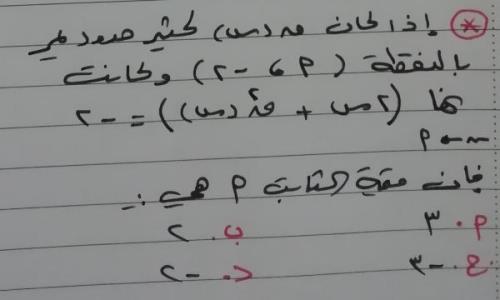 * إذا كان ق(س) كثير حدود يمر
بالنقطة (أ ، -٢) وكانت
نها (٢س + ق²(س)) = -٢
س←أ
فإن قيمة الثابت أ هي :-
أ. ٣ ب. ٢
ج. -٣ د. -٢